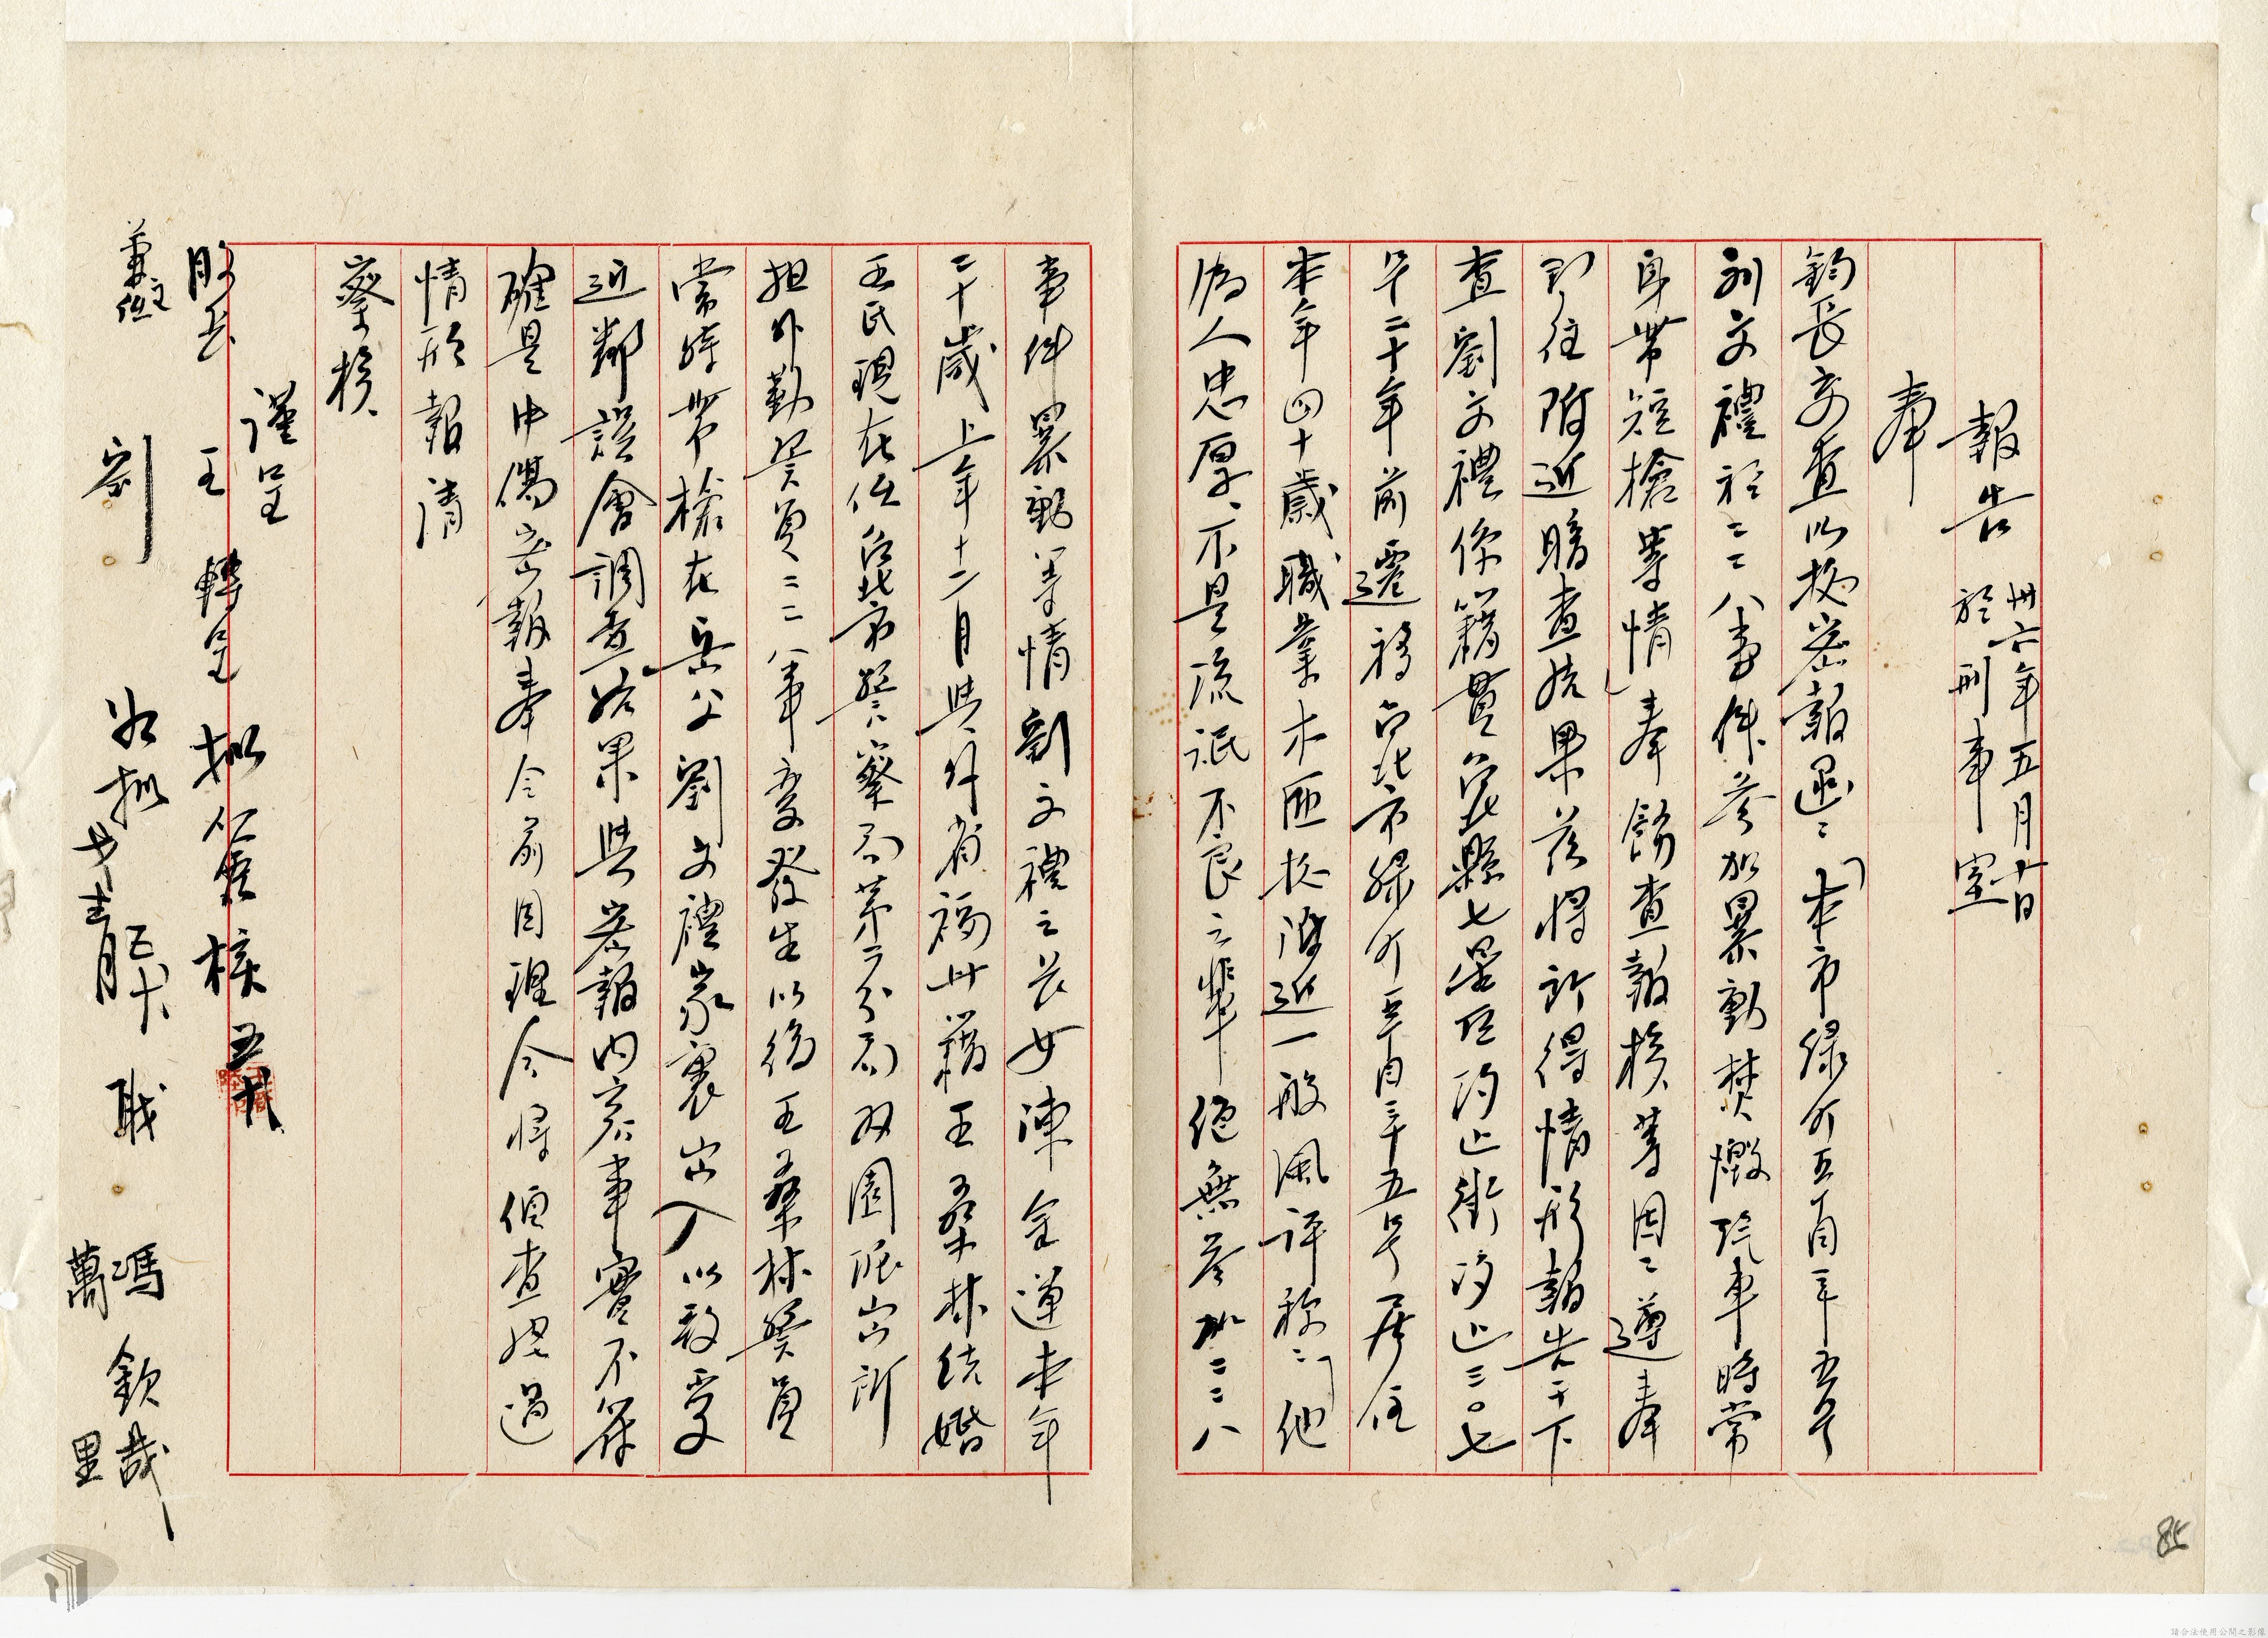 報告 卅六年五月廿日
於刑事室
奉
鈞長交查以據密報還云「本市綠町五百三十五號
劉文禮於二二八事件參加暴動焚燬汽車時常
身帶短槍等情」奉飭查報核等因遵奉
即往附近暗查結果茲將所得情形報告於下
查劉文禮係籍貫台北縣七星區汐止街汐止三〇七
號二十年前遷移台北市綠町五百三十五號居住
本年四十歲職業木匠據附近一般風評称云「他
為人忠厚、不是流氓不良之輩絕無參加二二八
事件暴動等情劉文禮之長女陳金蓮本年
二十歲上年十二月與外省福州籍王桑林結婚
王氏現在任台北市警察局第二分局双園派出所
担外勤警員二二八事变發生以後王桑林警員
常時帶槍在岳父劉文禮家裏出入以致受
近鄰誤會調查結果與密報內容事實不符
確是中傷密報奉令前因理合將偵查經過
情形報請
察核
謹呈
股長 王 轉呈 擬仁簽核 五廿
兼主任 劉
職 馮欽哉
萬里
85
請合法使用公開之影像